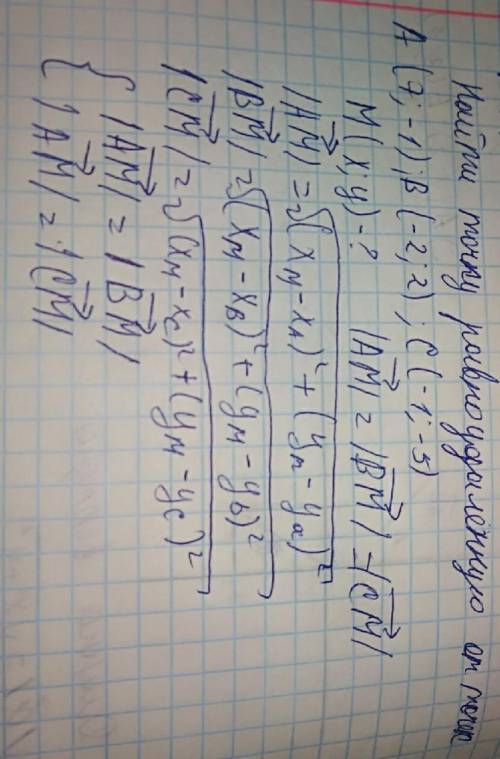 Найти точку равноудалённую от точек
A (7; -1); B (-2; 2); C (-1; -5)
M(x; y) - ? |AM| = |BM| = |CM|
|AM| = √(xм - xA)² + (yм - ya)²
|BM| = √(xм - xb)² + (yм - yb)²
|CM| = √(xм - xc)² + (yм - yc)²
{ |AM| = |BM|
|AM| = |CM|